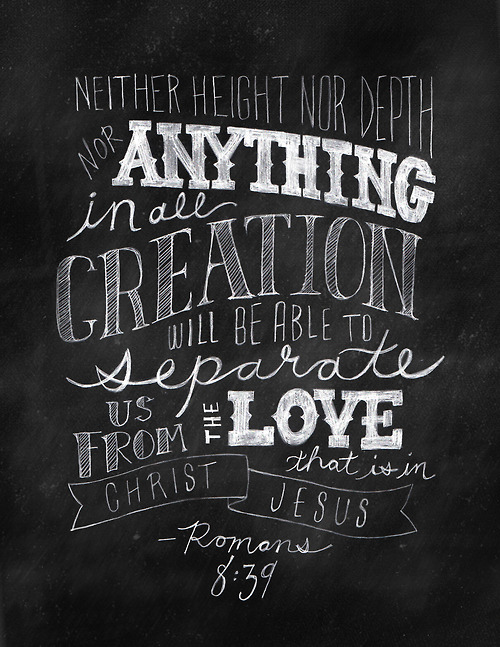 NEITHER HEIGHT NOR DEPTH
NOR ANYTHING
in all
CREATION
WILL BE ABLE TO
separate
US
FROM THE LOVE
that is in
CHRIST JESUS
- Romans
8:39